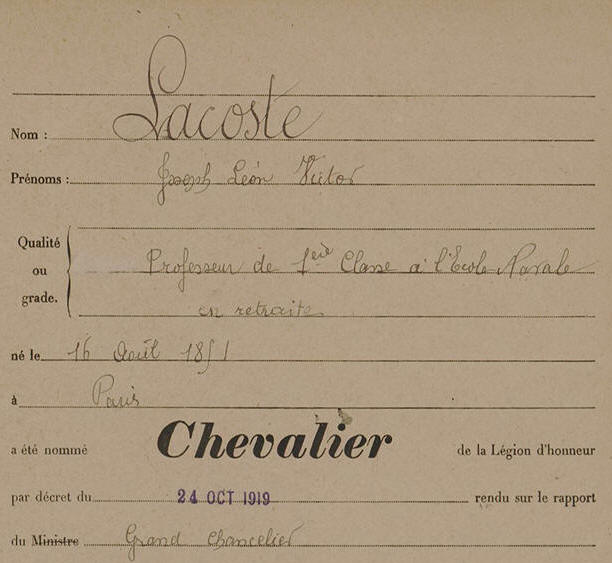 Nom : Lacoste
Prénoms : Joseph Léon Victor
Qualité ou grade. Professeur de 1ère Classe à l'Ecole Navale
en retraite
né le 16 Août 1851
à Paris
a été nommé Chevalier de la Légion d'honneur
par décret du 24 OCT 1919 rendu sur le rapport
du Ministre Grand Chancelier